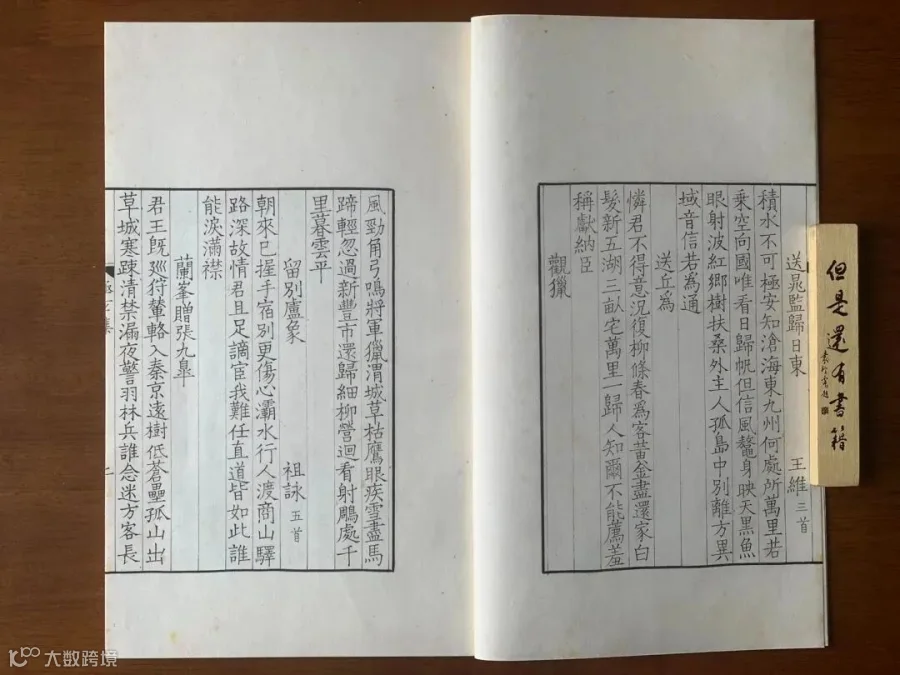 送晁監歸日東 王維 三首
積水不可極安知滄海東九州何處所萬里若
乘空向國唯看日歸帆但信風鼇身映天黑魚
眼射波紅鄉樹扶桑外主人孤島中別離方異
域音信若為通
送丘為
憐君不得意況復柳條春為客黃金盡還家白
髮新五湖三畝宅萬里一歸人知爾不能薦羞
稱獻納臣
觀獵
風勁角弓鳴將軍獵渭城草枯鷹眼疾雪盡馬
蹄輕忽過新豐市還歸細柳營迴看射鵰處千
里暮雲平
留別盧象 祖詠 五首
朝來已握手宿別更傷心灞水行人渡商山驛
路深故情君且足謫宦我難任直道皆如此誰
能淚滿襟
蘭峯贈張九皋
君王既巡狩輦輅入秦京遠樹低蒼壘孤山出
草城寒疎清禁漏夜警羽林兵誰念迷方客長
極玄集
但是還有書籍
大数跨境